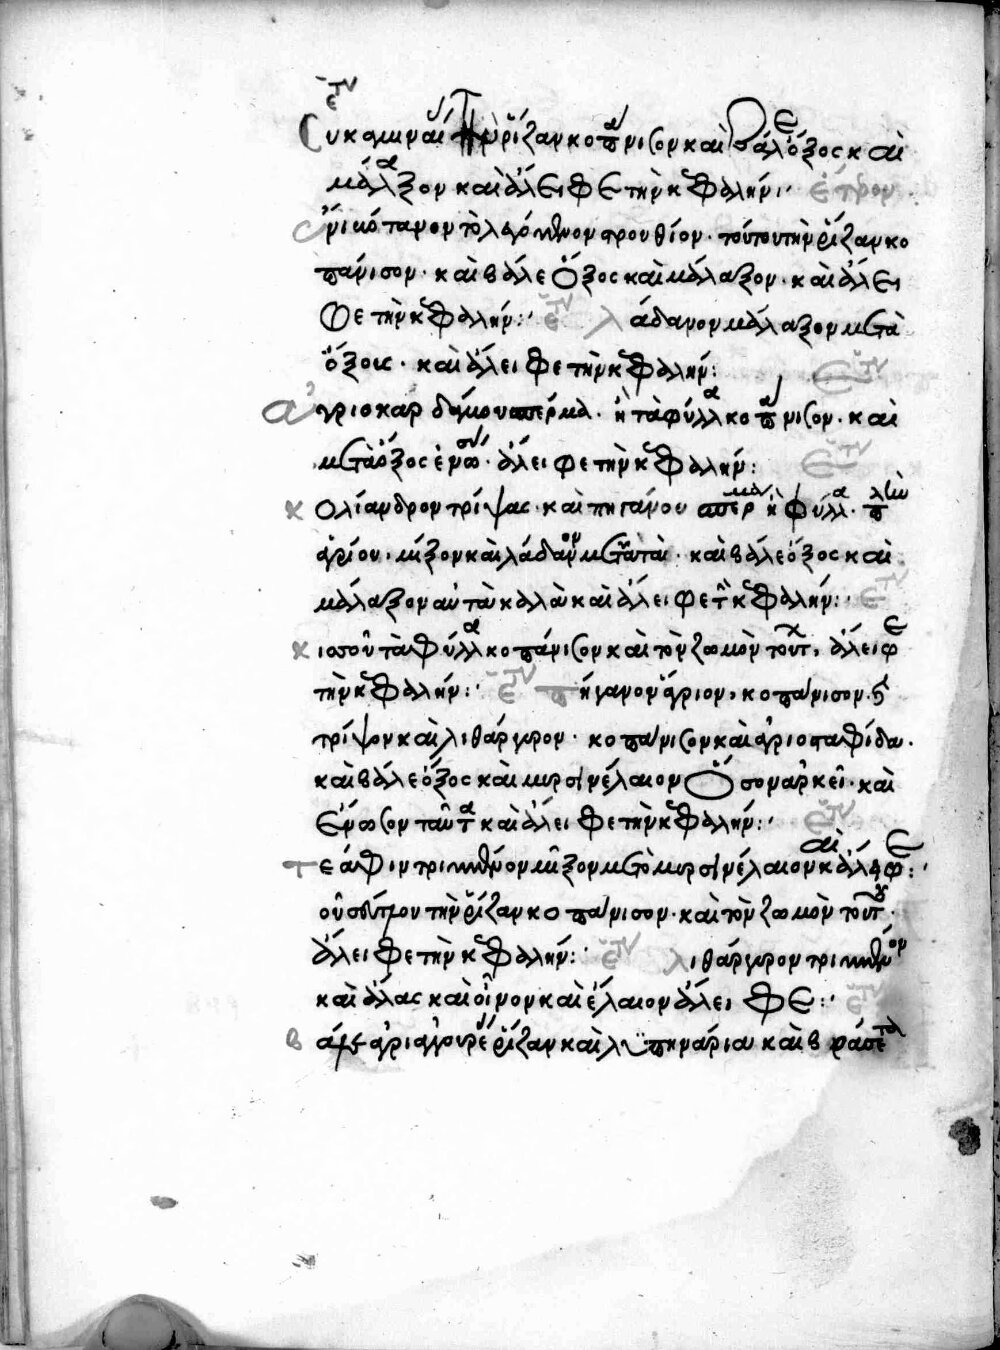 ἕτ
Συκαμιναί τὴν ρίζαν κοπάνισον καὶ βάλε ὄξος καὶ
μάλαξον καὶ ἄλειφε τὴν κεφαλήν: ἕτερον
τὸ λεγόμενον στρουθίον· τούτου τὴν ρίζαν κο
πάνισον· καὶ βάλε ὄξος καὶ μάλαξον· καὶ ἄλει
φε τὴν κεφαλήν: ἕτ λάδανον μάλαξον μετὰ
ὄξους· καὶ ἄλειφε τὴν κεφαλήν: ἕτ
ἀγριοκαρδάμου σπέρμα· ἢ τὰ φύλλα κοπάνισον· καὶ
μετὰ ὄξος ἑνώσον· ἄλειφε τὴν κεφαλήν: ἕτ
κολίανδρον τρίψας· καὶ πηγάνου σπέρμα ἢ φύλλα·
ἀγρίου· μίξον καὶ λάδανον μετὰ· καὶ βάλε ὄξος καὶ
μάλαξον αὐτὰ καλὰ καὶ ἄλειφε τὴν κεφαλήν: ἕτ
κισσοῦ τὰ φύλλα κοπάνισον καὶ τὸν ζωμὸν τούτ, ἄλειφε
τὴν κεφαλήν: ἕτ πήγανον ἄγριον, κοπάνισον·
τρίψον καὶ λιθάργυρον· κοπάνισον καὶ ἀγριοσταφίδα·
καὶ βάλε ὄξος καὶ μυρσινέλαιον ὅσον ἀρκεῖ· καὶ
ἕνωσον ταῦτα καὶ ἄλειφε τὴν κεφαλήν: ἕτ
τεάφιν τριμμένον μίξον μετὸ μυρσινέλαιον καὶ ἄλειφε:
τὴν ρίζαν κοπάνισον· καὶ τὸν ζωμὸν τούτου·
ἄλειφε τὴν κεφαλήν: ἕτ λιθάργυρον τριμμένον
καὶ ἅλας καὶ οἶνον καὶ ἔλαιον ἄλειφε: ἕτ
ρίζαν καὶ